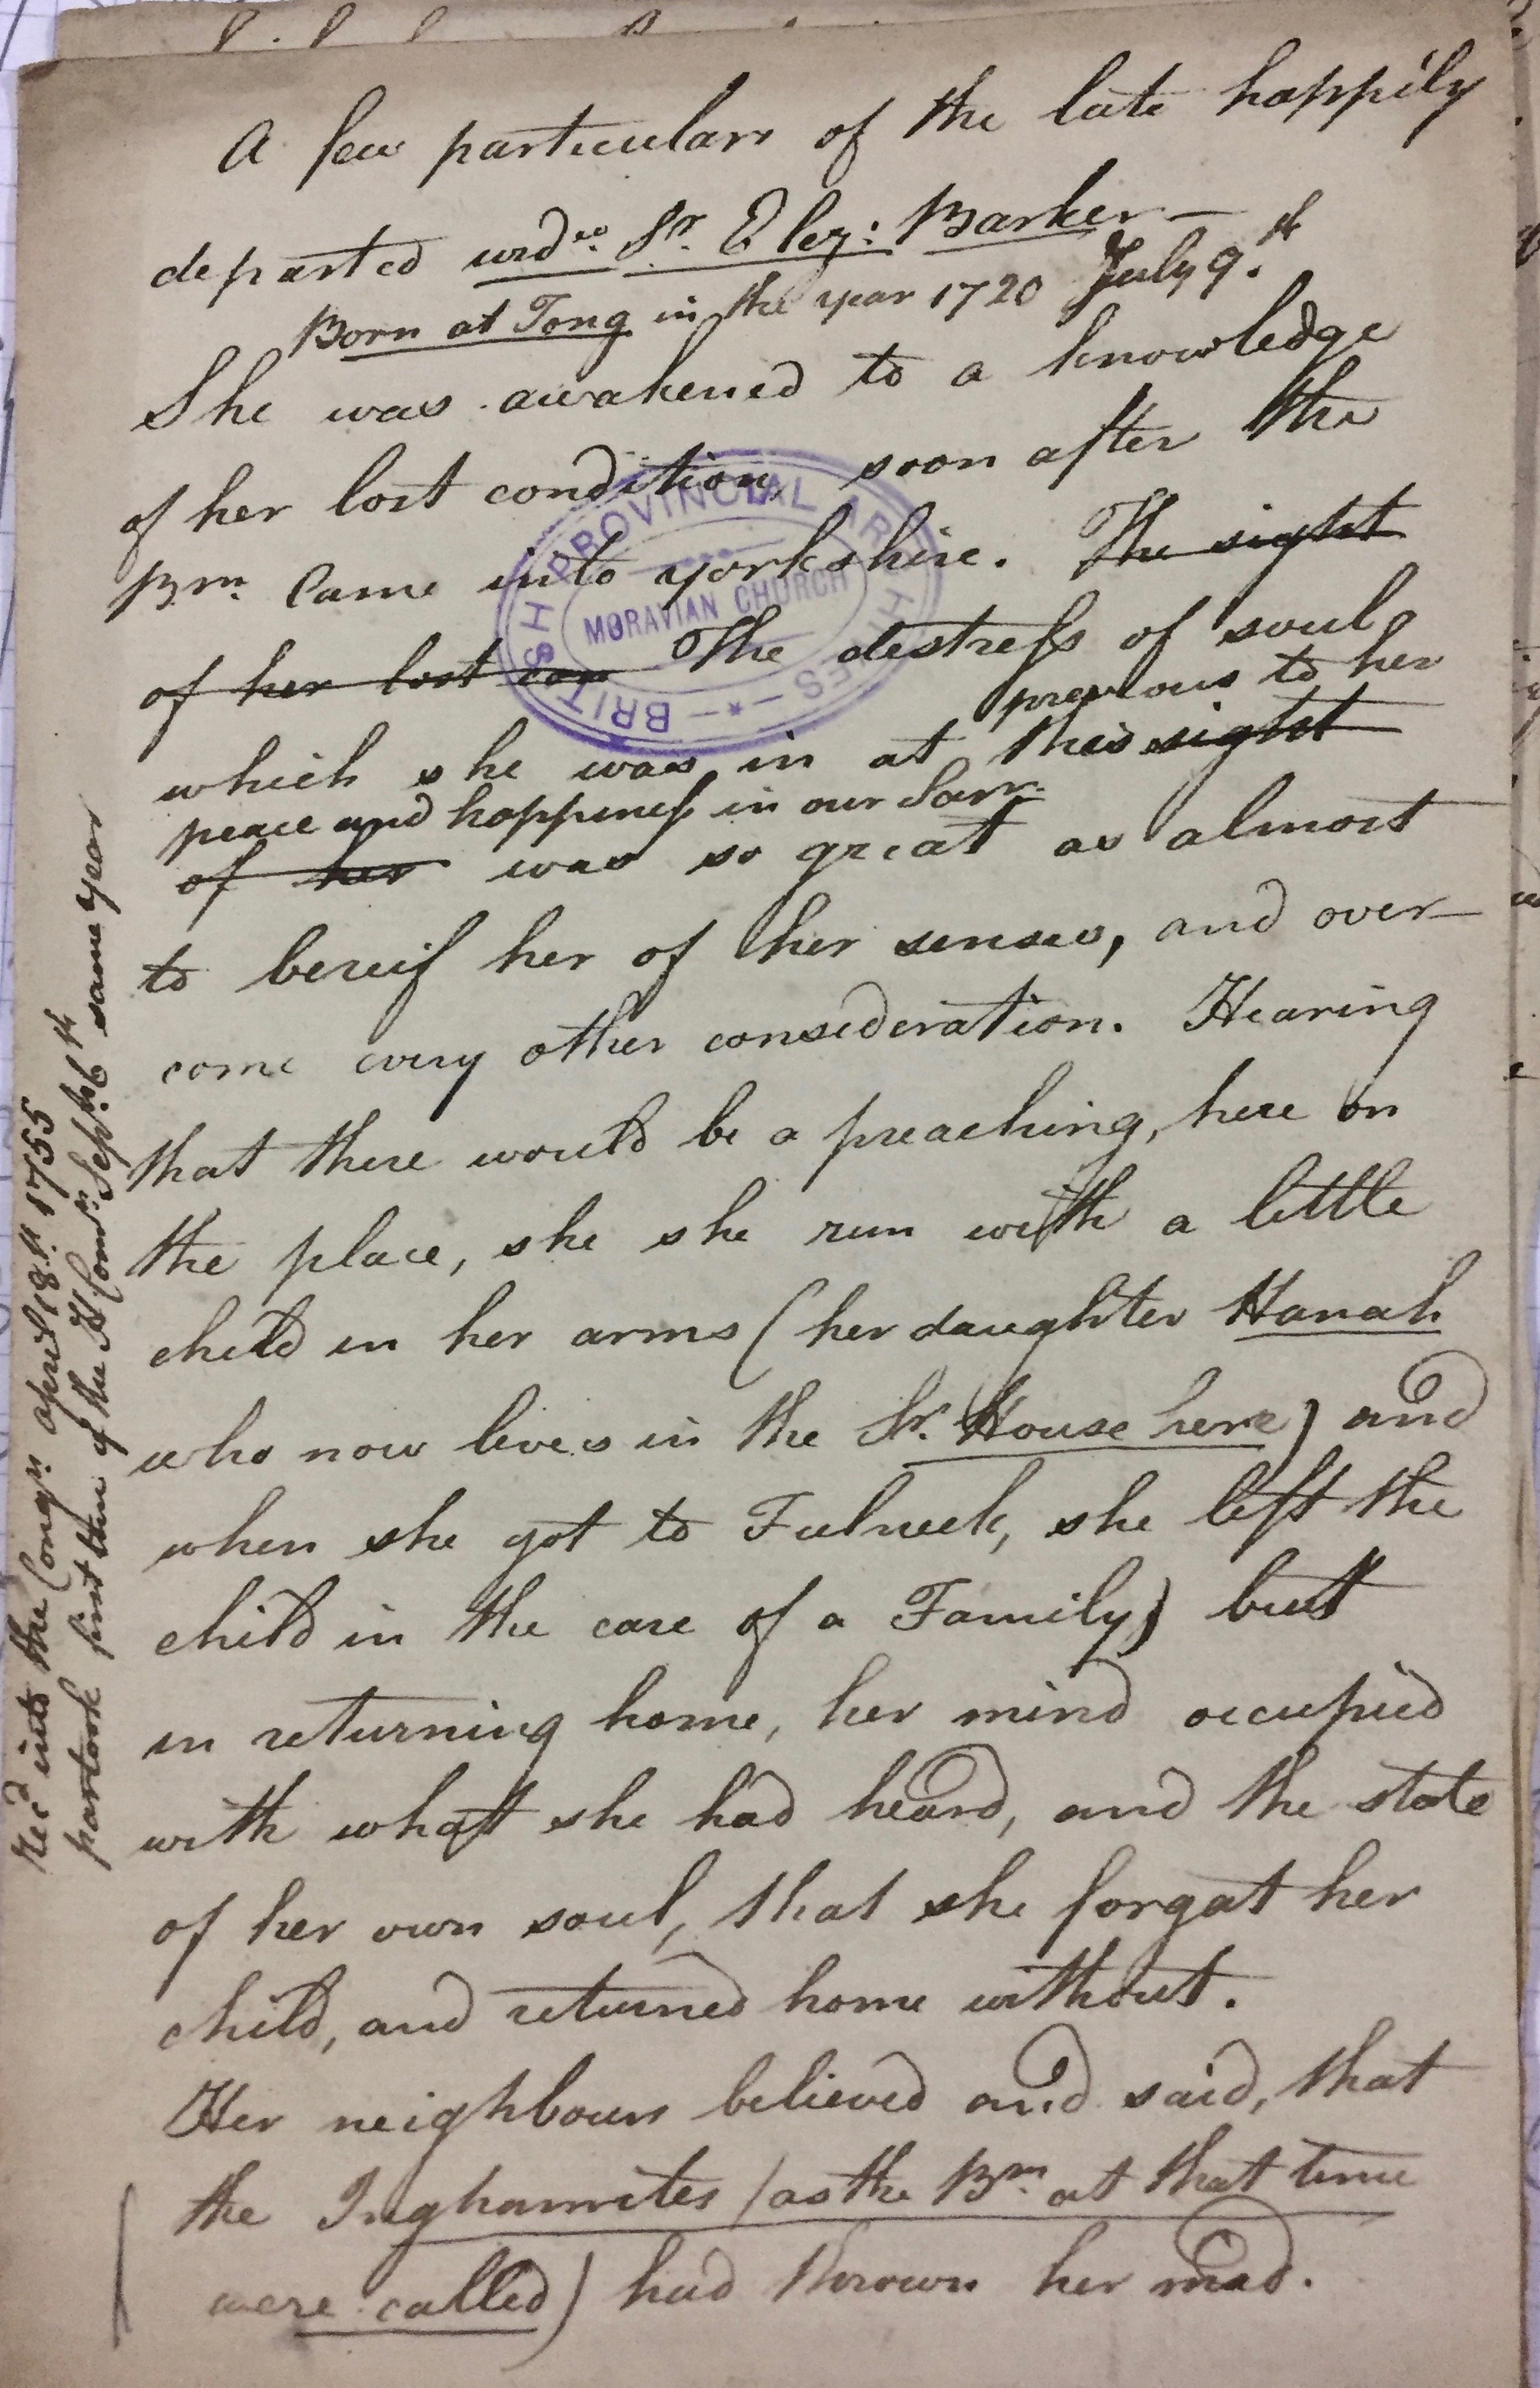 A few particulars of the late happily
departed wid.ow Sr. Eliz: Barker —
Born at Tong in the year 1720 July 9.th
She was awakened to a knowledge
of her lost condition, soon after the
Brn. Came into yorkshire. The sight
of her lost con The destress of soul
previous to her
which she was in at this sight
peace and happiness in our Savr.
of her was so great as almost
to bereif her of her senses, and over-
come every other consideration. Hearing
that there would be a preaching, here on
the place, she she run with a little
child in her arms (her daughter Hanah
who now lives in the Sr. House here) and
when she got to Fulneck, she left the
child in the care of a Family) but
in returning home, her mind occupied
with what she had heard, and the state
of her own soul, that she forgat her
child, and returned home without.
Her neighbours believed and said, that
the Inghamites / as the Brn. at that time
were called) had thrown her mad.
Recd into the Congn. april 18th 1755
partook first time of the H Comn. Septr. 6th same year
BRITISH PROVINCIAL ARCHIVES
MORAVIAN CHURCH